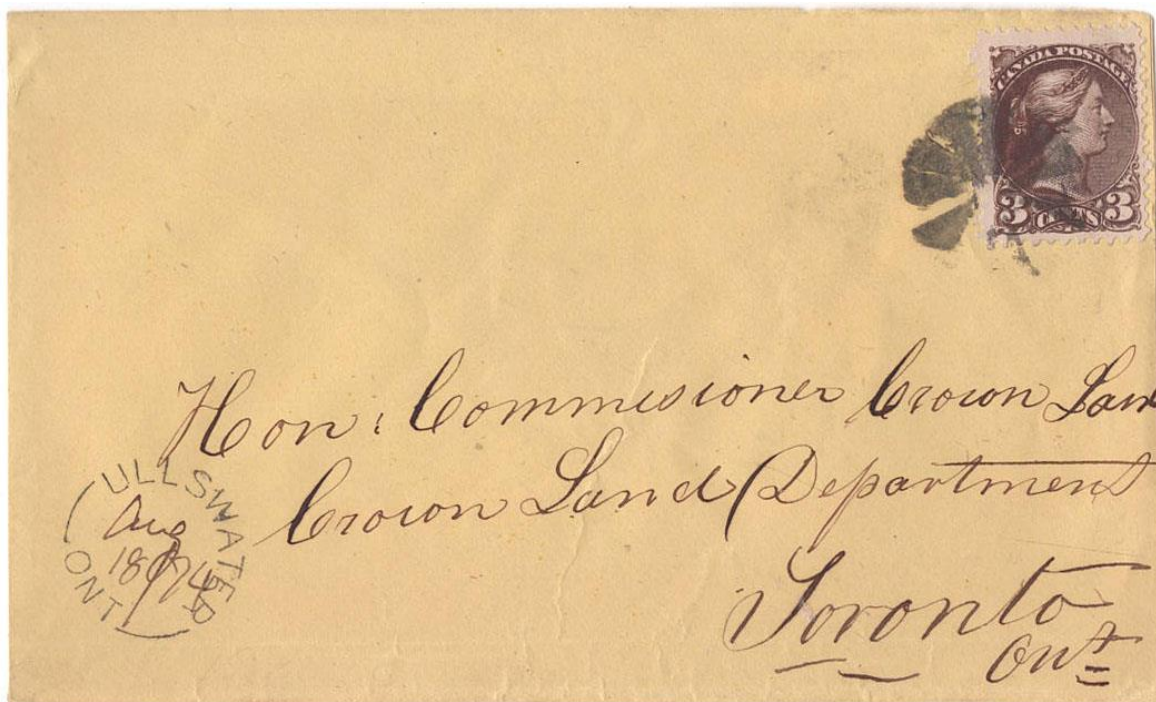 CANADA POSTAGE
3 CENTS 3
Hon: Commisioner Crown Lan
Crown Land Department
Toronto
Ont
ULLSWATER
Aug
ONT